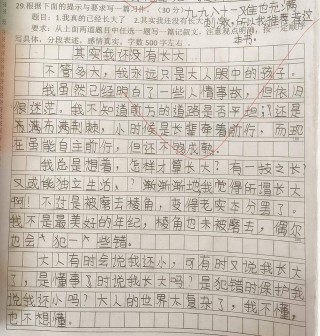 29.根据下面的提示与要求写一篇习作。(30分)
题目：1.我真的已经长大了 2.其实我还没有长大
要求：从上面两道题目中任选一题写一篇记叙文。注意观点明确，按一定顺序
写具体，分段表述，感情真实。字数500字左右。
其实我还没有长大
不管多大，我永远只是大人眼中的孩子。
我虽然已经明白了一些人情事故，但依旧
很迷茫。我不知道前方的道路是否平坦；还是
布满荆棘，小时候是长辈牵着前行，而现
在虽能自主前行，但还不够成熟。
我总是想着，怎样才算长大？有一技之长？
又或能独立生活，？渐渐渐地我觉得所谓长大
啊！不过是被磨去棱角，变得老实本分罢了。
我不是最美好的年纪，棱角也未被磨去，偶尔
也会犯一些错。
大人有时会说我还小，可有时又说我长大
了，是懂事了时说我长大吗？是犯错时保护我
说我还小吗？大人的世界太复杂了，我不懂，
也不想懂。